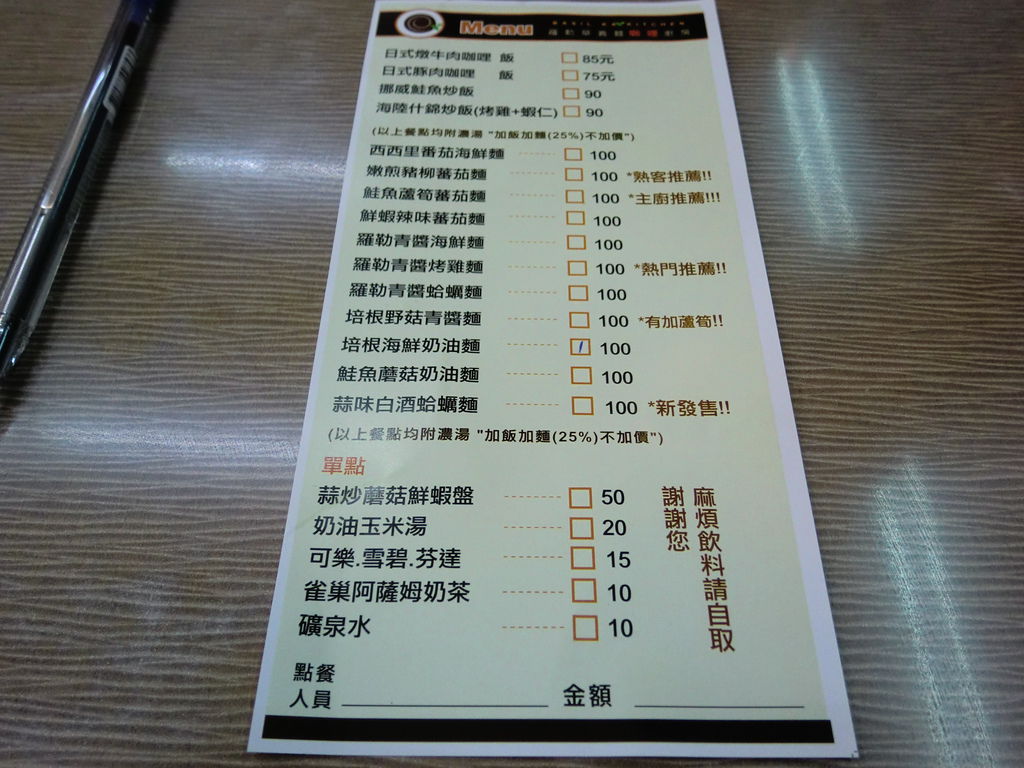 Menu BASIL KITCHEN
日式燉牛肉咖哩 飯 85元
日式豚肉咖哩 飯 75元
挪威鮭魚炒飯 90
海陸什錦炒飯(烤雞+蝦仁) 90
(以上餐點均附濃湯 "加飯加麵(25%)不加價")
西西里番茄海鮮麵 100
嫩煎豬柳蕃茄麵 100 *熟客推薦!!
鮭魚蘆筍蕃茄麵 100 *主廚推薦!!!
鮮蝦辣味蕃茄麵 100
羅勒青醬海鮮麵 100
羅勒青醬烤雞麵 100 *熱門推薦!!
羅勒青醬蛤蠣麵 100
培根野菇青醬麵 100 *有加蘆筍!!
培根海鮮奶油麵 100
鮭魚蘑菇奶油麵 100
蒜味白酒蛤蠣麵 100 *新發售!!
(以上餐點均附濃湯 "加飯加麵(25%)不加價")
單點
蒜炒蘑菇鮮蝦盤 50
奶油玉米湯 20
可樂.雪碧.芬達 15
雀巢阿薩姆奶茶 10
礦泉水 10
麻煩飲料請自取
謝謝您
點餐
人員
金額